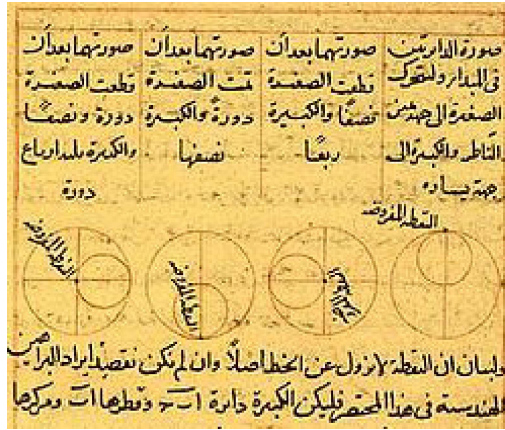 صورة الدايرتين
فى المبدا ولتتحرك
الصغيرة الى جهة يمين
الناظر والكبيرة الى
جهة يساره
صورتهما بعد ان
قطعت الصغيرة
نصفا والكبيرة
ربعا
صورتهما بعد ان
تمت الصغيرة
دورة والكبيرة
نصفها
صورتهما بعد ان
قطعت الصغيرة
دورة ونصفا
والكبيرة ثلثة ارباع
دورة
النقطة المفروضة
النقطة المفروضة
النقطة المفروضة
النقطة المفروضة
ولبيان ان النقطة لا تزول عن الخط اصلا وان لم يكن نقصد ايراد البراهين
الهندسية فى هذا المختصر فليكن الكبيرة دائرة اب وقطرها اب ومركزها